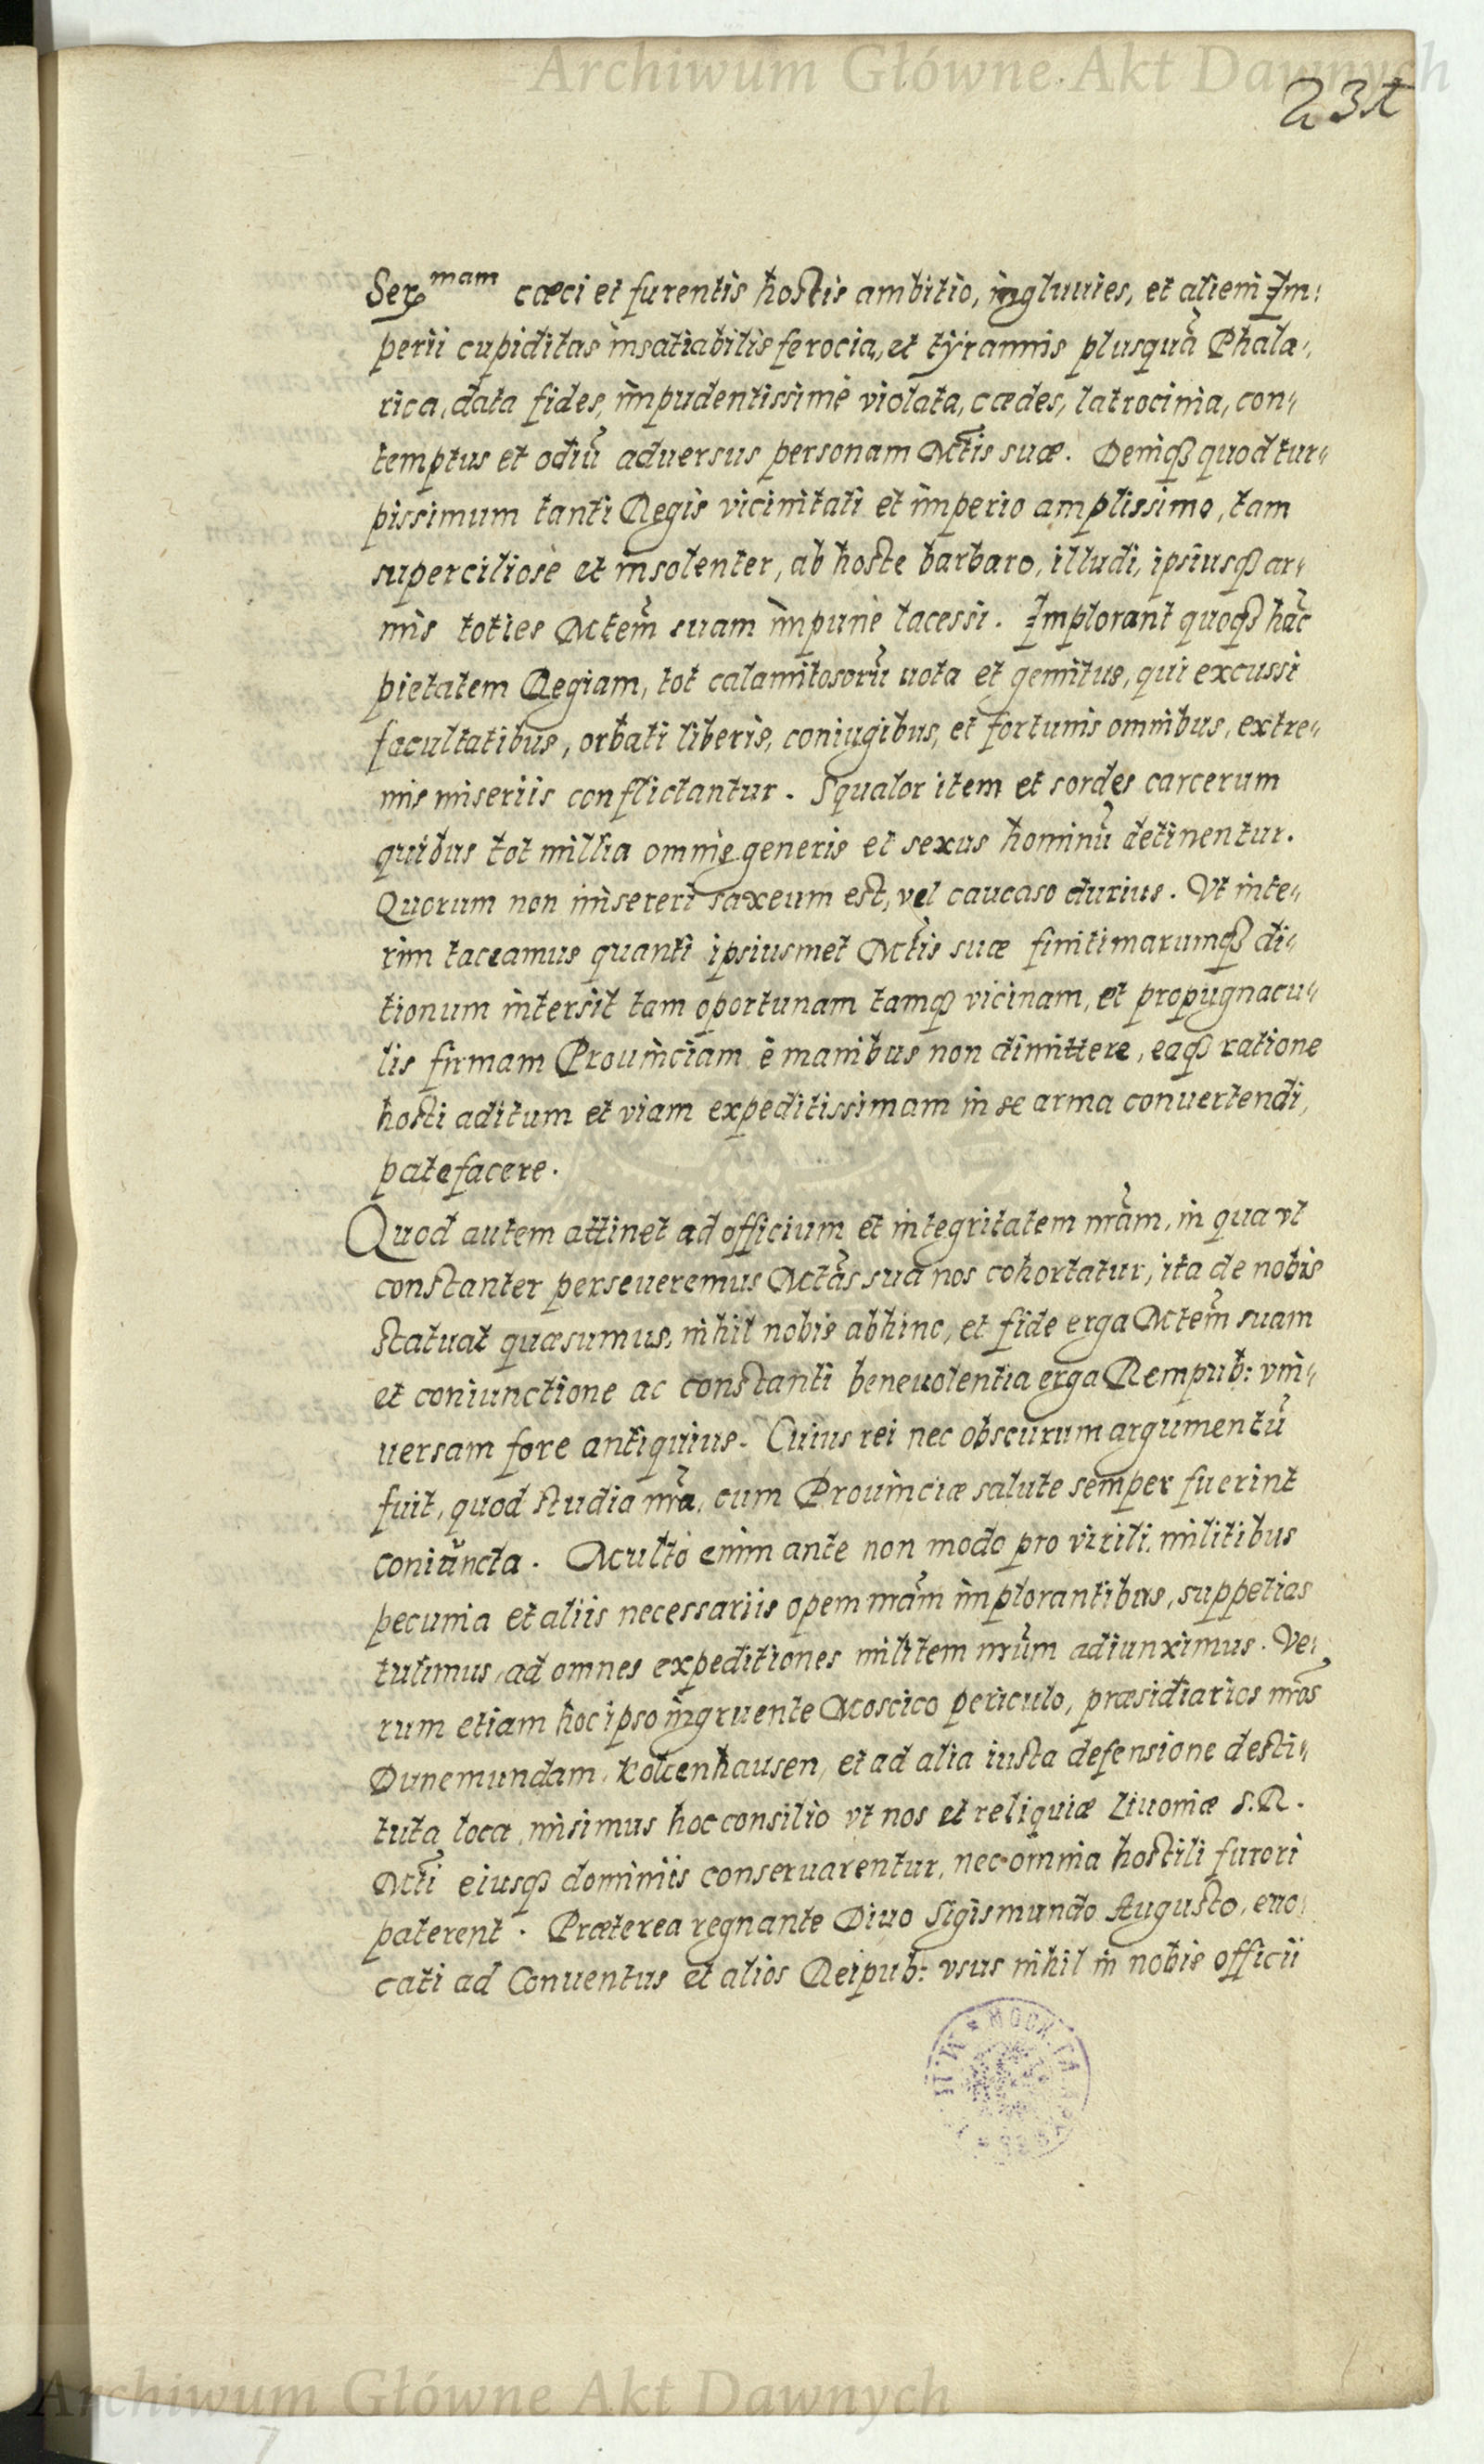 Archiwum Główne Akt Dawnych
231
Ser^mam cæci et furentis hostis ambitio, ingluuies, et alieni Im:
perii cupiditas insatiabilis ferocia, et tÿrannis plusquā Phala:,
rica, data fides, impudentissimè violata, cædes, latrocinia, con„
temptus et odiū aduersus personam Mt̃is suæ. Deniqꝫ quod tur„
pissimum tanti Regis vicinitati et imperio amplissimo, tam
superciliosè et insolenter, ab hoste barbaro, illudi, ipsiusqꝫ ar„
mis toties Mtem̃ suam impunè lacessi. Implorant quoqꝫ hāc
pietatem Regiam, tot calamitosorū uota et gemitus, qui excussi
facultatibus, orbati liberis, coniugibus, et fortunis omnibus, extre„
mis miseriis conflictantur. Squalor item et sordes carcerum
quibus tot millia omnis generis et sexus hominū detinentur.
Quorum non misereri saxeum est, vel caucaso durius. Vt inte„
rim taceamus quanti ipsiusmet Mt̃is suæ finitimarumqꝫ di„
tionum intersit tam oportunam tamqꝫ vicinam, et propugnacu„
lis firmam Prouinciam è manibus non dimittere, eaqꝫ ratione
hosti aditum et viam expeditissimam in se arma conuertendi,
patefacere.
Quod autem attinet ad officium et integritatem nr̃am, in qua vt
constanter perseueremus Mtãs sua nos cohortatur, ita de nobis
statuat quæsumus, nihil nobis abhinc, et fide erga Mtem̃ suam
et coniunctione ac constanti beneuolentia erga Rempub: vni„
uersam fore antiquius. Cuius rei nec obscurum argumentū
fuit, quod studia nr̃a, cum Prouinciæ salute semper fuerint
coniuncta. Multò enim ante non modo pro virili militibus
pecunia et aliis necessariis opem nr̃am implorantibus, suppetias
tulimus, ad omnes expeditiones militem nr̃um adiunximus. Ve:
rum etiam hoc ipso ingruente Moscico periculo, præsidiarios nr̃os
Dunemundam, Kokenhausen, et ad alia iusta defensione desti„
tuta loca, misimus hoc consilio vt nos et reliquiæ Liuoniæ S. R.
Mt̃i eiusqꝫ dominiis conseruarentur, nec omnia hostili furori
paterent. Præterea regnante Diuo Sigismundo Augusto, euo:
cati ad Conuentus et alios Reipub: vsus nihil in nobis officii
Archiwum Główne Akt Dawnych